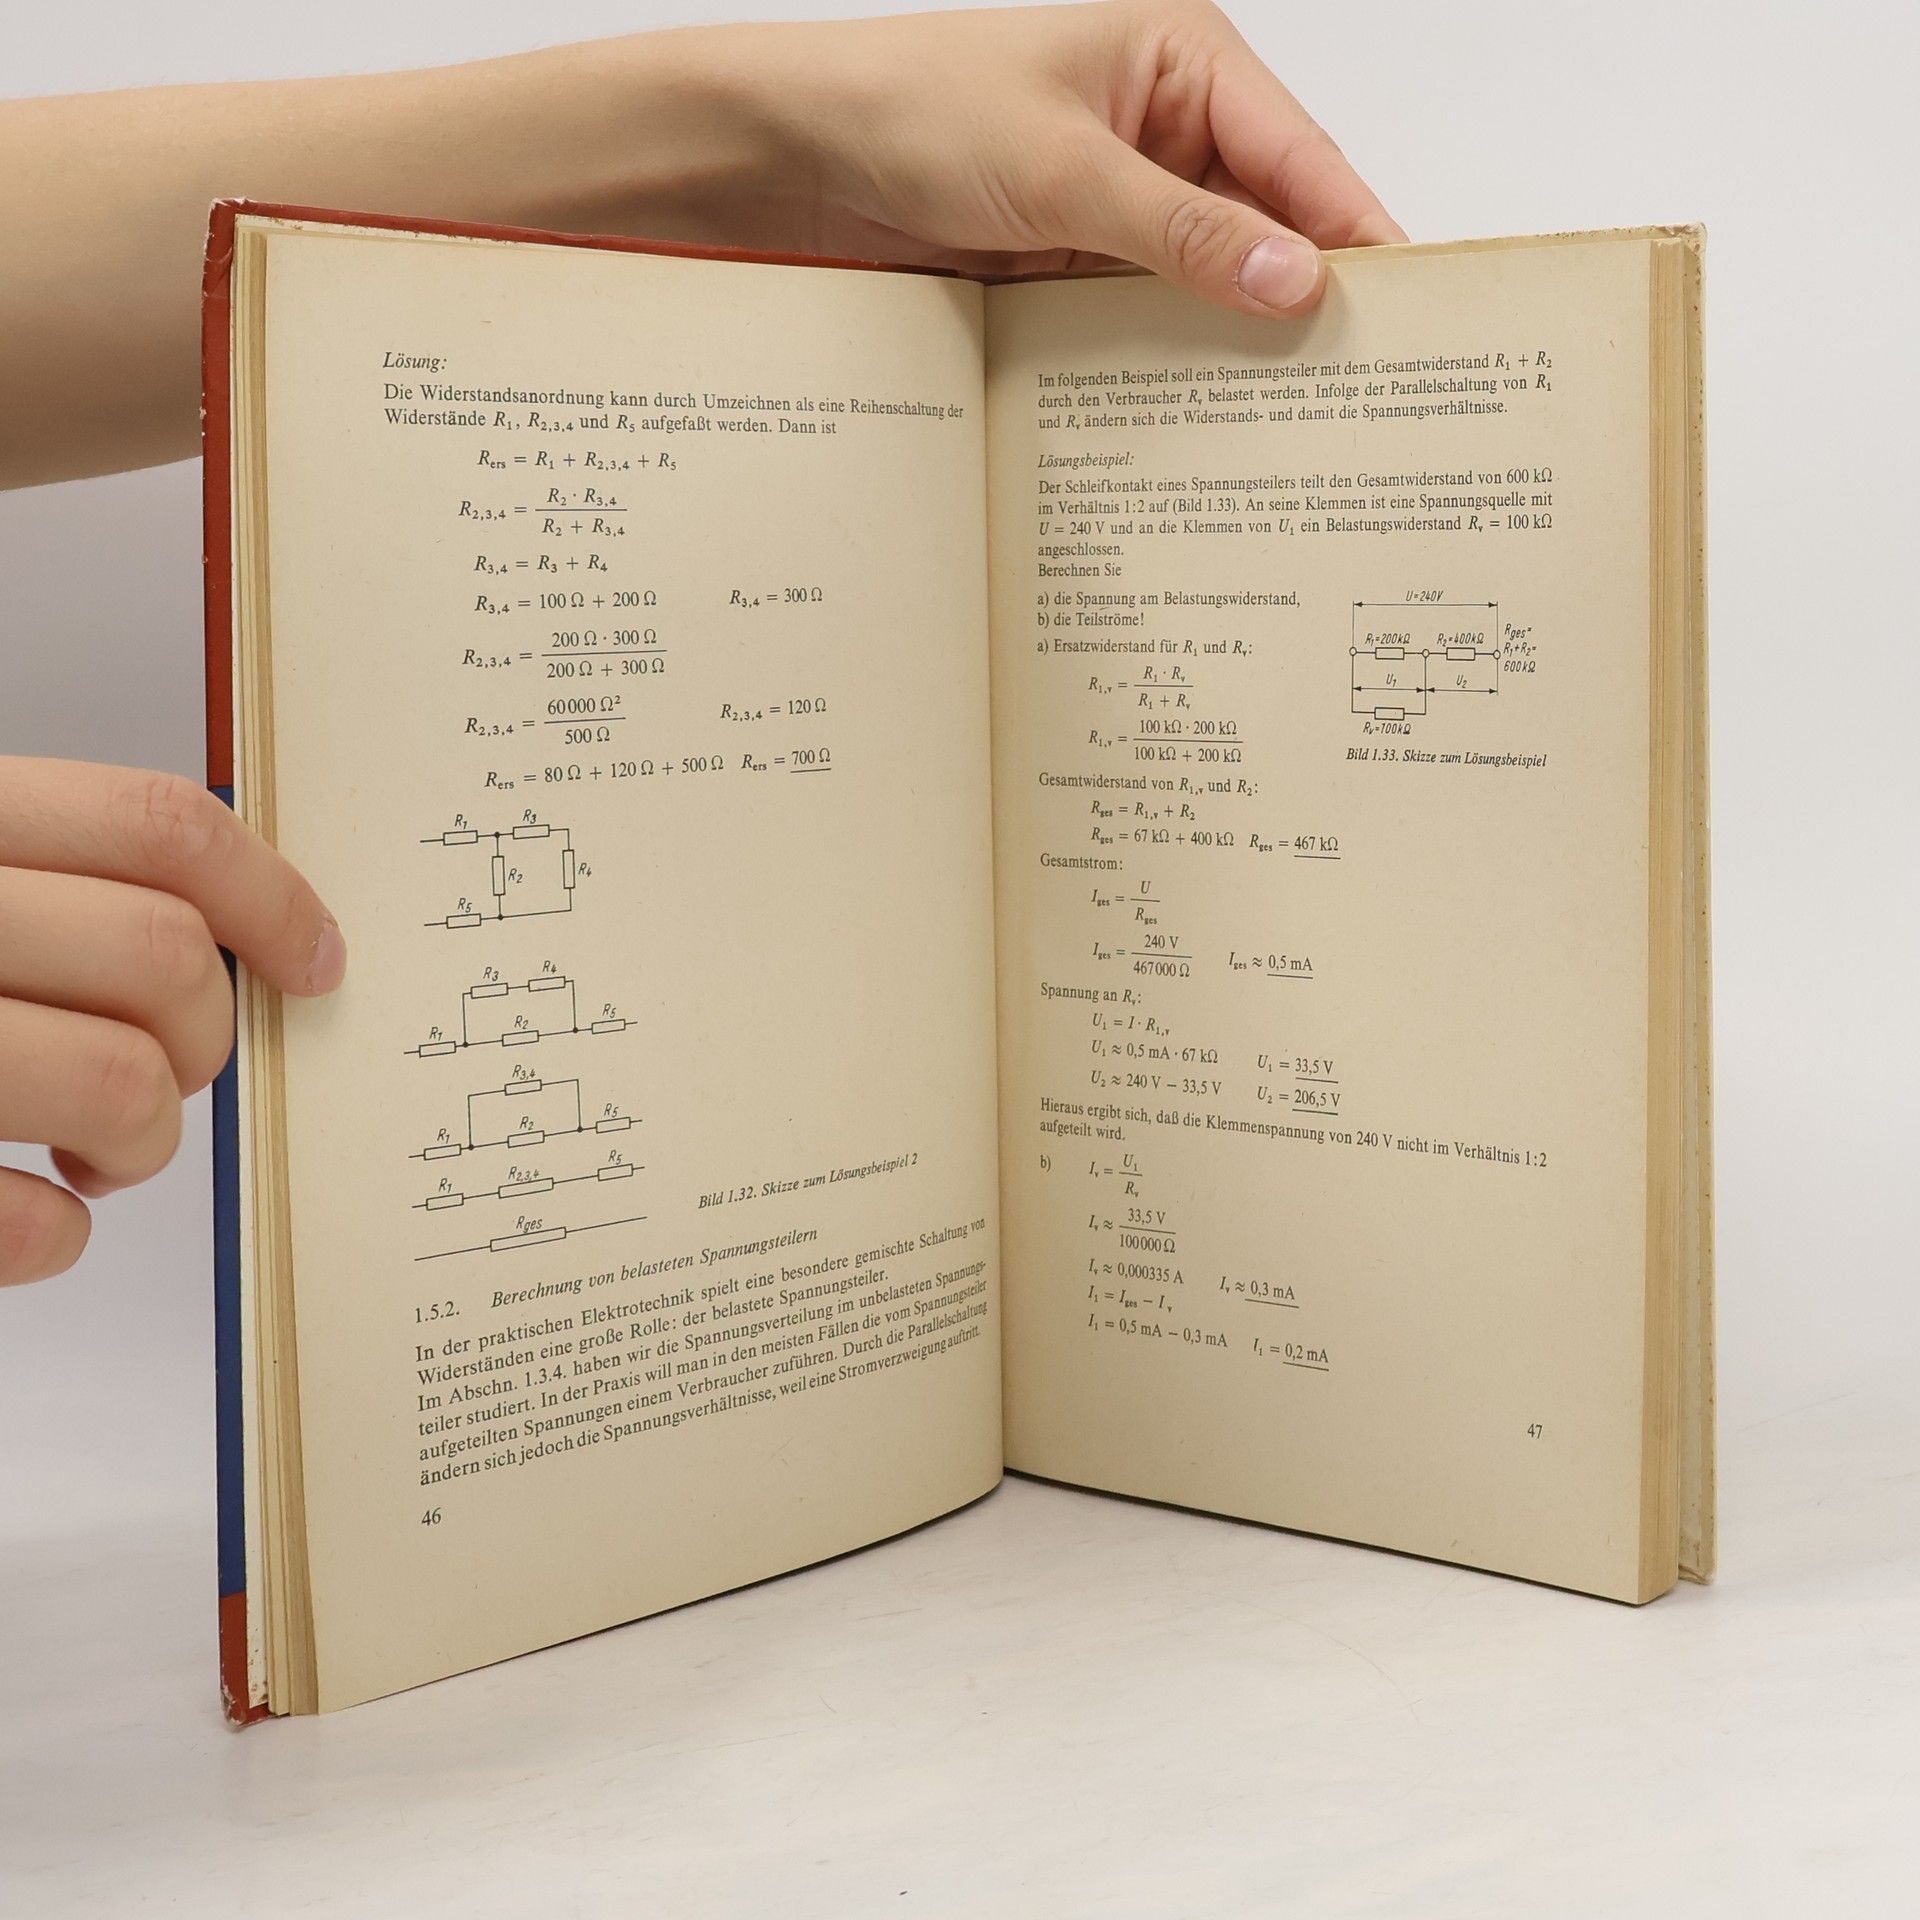 Lösung:
Die Widerstandsanordnung kann durch Umzeichnen als eine Reihenschaltung der
Widerstände R₁, R₂,₃,₄ und R₅ aufgefaßt werden. Dann ist
R_ers = R₁ + R₂,₃,₄ + R₅
R₂,₃,₄ = (R₂ · R₃,₄) / (R₂ + R₃,₄)
R₃,₄ = R₃ + R₄
R₃,₄ = 100 Ω + 200 Ω    R₃,₄ = 300 Ω
R₂,₃,₄ = (200 Ω · 300 Ω) / (200 Ω + 300 Ω)
R₂,₃,₄ = 60000 Ω² / 500 Ω    R₂,₃,₄ = 120 Ω
R_ers = 80 Ω + 120 Ω + 500 Ω    R_ers = 700 Ω
R₁ R₃
R₂ R₄
R₅
R₃ R₄
R₁ R₂ R₅
R₃,₄
R₁ R₂ R₅
R₁ R₂,₃,₄ R₅
Rges
Bild 1.32. Skizze zum Lösungsbeispiel 2
1.5.2. Berechnung von belasteten Spannungsteilern
In der praktischen Elektrotechnik spielt eine besondere gemischte Schaltung von
Widerständen eine große Rolle: der belastete Spannungsteiler.
Im Abschn. 1.3.4. haben wir die Spannungsverteilung im unbelasteten Spannungs-
teiler studiert. In der Praxis will man in den meisten Fällen die vom Spannungsteiler
aufgeteilten Spannungen einem Verbraucher zuführen. Durch die Parallelschaltung
ändern sich jedoch die Spannungsverhältnisse, weil eine Stromverzweigung auftritt.
46
Im folgenden Beispiel soll ein Spannungsteiler mit dem Gesamtwiderstand R₁ + R₂
durch den Verbraucher Rᵥ belastet werden. Infolge der Parallelschaltung von R₁
und Rᵥ ändern sich die Widerstands- und damit die Spannungsverhältnisse.
Lösungsbeispiel:
Der Schleifkontakt eines Spannungsteilers teilt den Gesamtwiderstand von 600 kΩ
im Verhältnis 1:2 auf (Bild 1.33). An seine Klemmen ist eine Spannungsquelle mit
U = 240 V und an die Klemmen von U₁ ein Belastungswiderstand Rᵥ = 100 kΩ
angeschlossen.
Berechnen Sie
a) die Spannung am Belastungswiderstand,
b) die Teilströme!
a) Ersatzwiderstand für R₁ und Rᵥ:
R₁,ᵥ = (R₁ · Rᵥ) / (R₁ + Rᵥ)
R₁,ᵥ = (100 kΩ · 200 kΩ) / (100 kΩ + 200 kΩ)
U=240V
R₁=200kΩ R₂=400kΩ
Rges=
R₁+R₂=
600kΩ
U₁ U₂
Rᵥ=100kΩ
Bild 1.33. Skizze zum Lösungsbeispiel
Gesamtwiderstand von R₁,ᵥ und R₂:
R_ges = R₁,ᵥ + R₂
R_ges = 67 kΩ + 400 kΩ    R_ges = 467 kΩ
Gesamtstrom:
I_ges = U / R_ges
I_ges = 240 V / 467000 Ω    I_ges ≈ 0,5 mA
Spannung an Rᵥ:
U₁ = I · R₁,ᵥ
U₁ ≈ 0,5 mA · 67 kΩ    U₁ = 33,5 V
U₂ ≈ 240 V − 33,5 V    U₂ = 206,5 V
Hieraus ergibt sich, daß die Klemmenspannung von 240 V nicht im Verhältnis 1:2
aufgeteilt wird.
b) Iᵥ = U₁ / Rᵥ
Iᵥ ≈ 33,5 V / 100000 Ω
Iᵥ ≈ 0,000335 A    Iᵥ ≈ 0,3 mA
I₁ = I_ges − Iᵥ
I₁ = 0,5 mA − 0,3 mA    I₁ = 0,2 mA
47